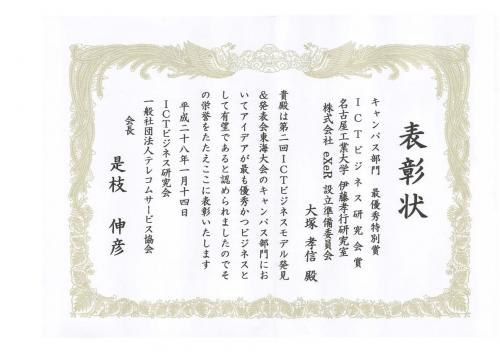 表彰状
キャンパス部門　最優秀特別賞
ＩＣＴビジネス研究会賞
名古屋工業大学 伊藤孝行研究室
株式会社 eXeR 設立準備委員会
大塚 孝信 殿
貴殿は第二回ＩＣＴビジネスモデル発見
&発表会東海大会のキャンパス部門にお
いてアイデアが最も優秀かつビジネスと
して有望であると認められましたのでそ
の栄誉をたたえここに表彰いたします
平成二十八年一月十四日
ＩＣＴビジネス研究会
一般社団法人テレコムサービス協会
会長　是枝 伸彦